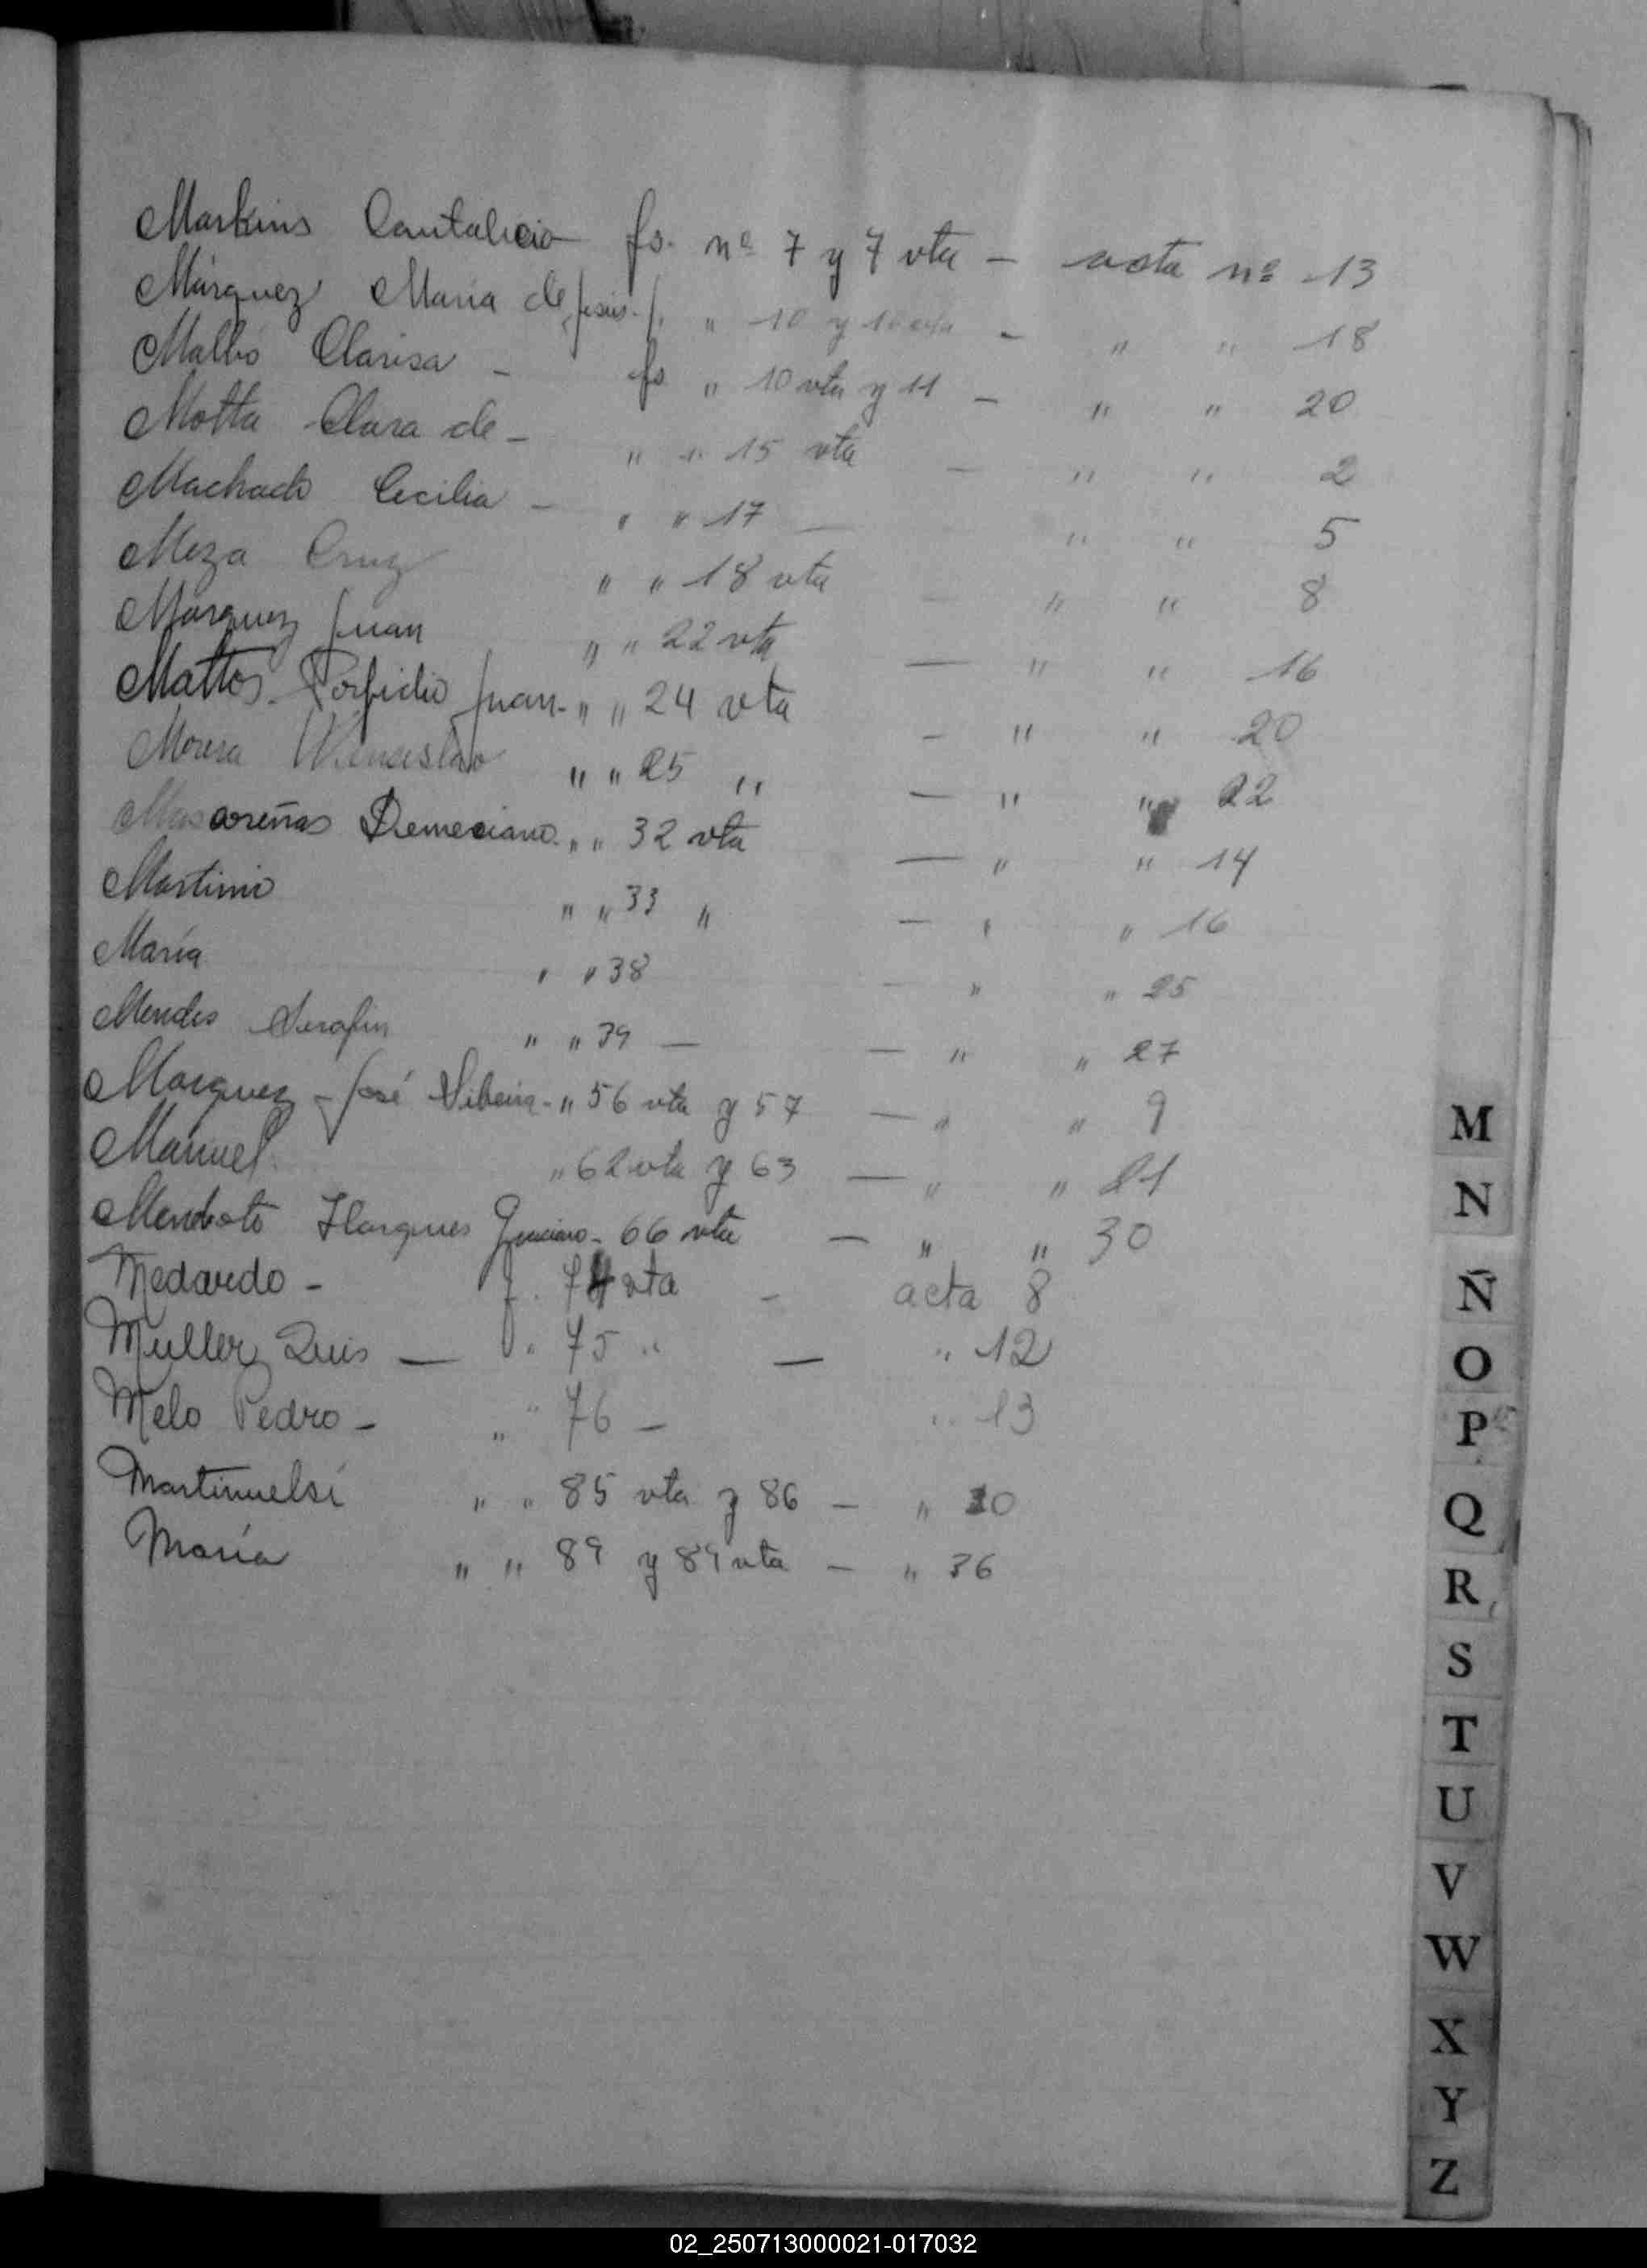 Markins Cantalicio fs. nº 7 y 7 vta - acta nº 13
Márquez María de Jesús - f. " 10 y 10 vta - " " 18
Mallo Clarisa - fs. " 10 vta y 11 - " " 20
Motta Clara de - " " 15 vta - " " 2
Machado Cecilia - " " 17 - " " 5
Meza Cruz " " 18 vta - " " 8
Márquez Juan " " 22 vta - " " 16
Mattos - Porfidio Juan - " " 24 vta - " " 20
Morera Wenceslao " " 25 " - " " 22
Mascareñas Demeciano - " " 32 vta - " " 14
Martini " " 33 " - " " 16
María " " 38 - " " 25
Mendes Serafin " " 39 - - " " 27
Marquez - José Silveira - " 56 vta y 57 - " " 9
Manuel " 62 vta y 63 - " " 21
66 vta - " " 30
Medardo - f. 74 vta - acta 8
Muller Luis - " 75 " - " 12
Melo Pedro - " " 76 - " 13
" " 85 vta y 86 - " 10
María " " 89 y 89 vta - " 36
M
N
Ñ
O
P
Q
R
S
T
U
V
W
X
Y
Z
02_250713000021-017032